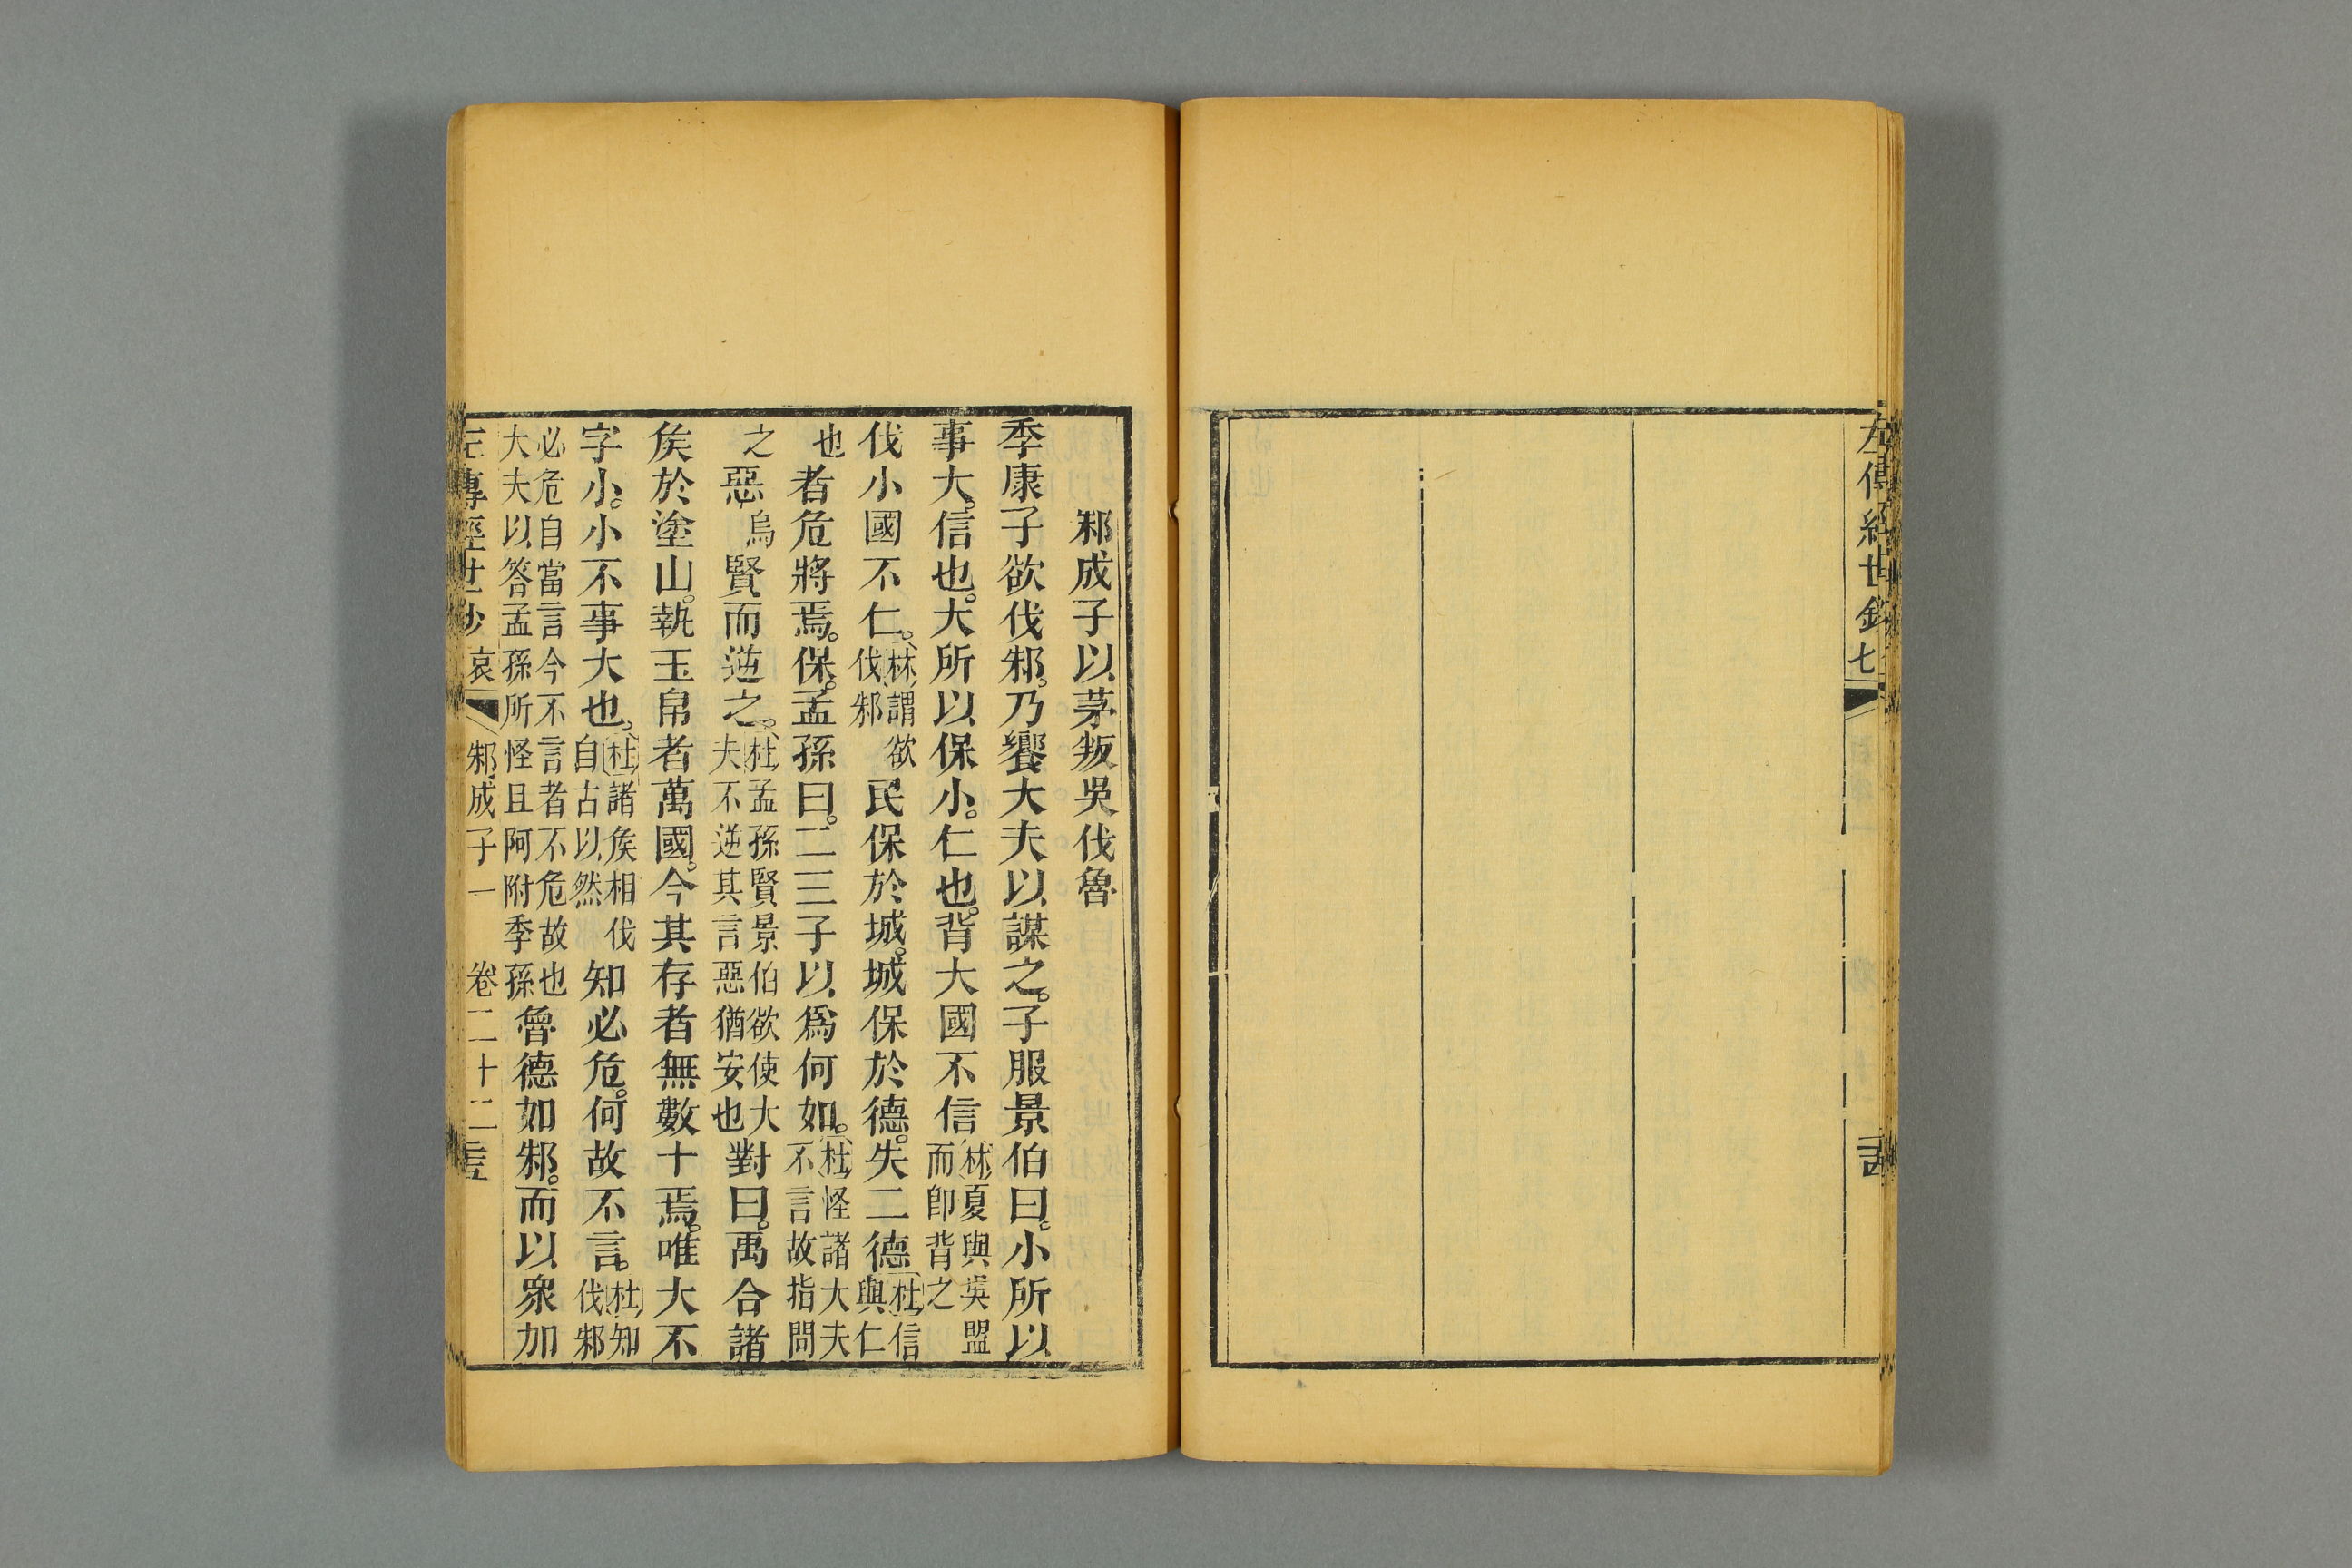 左傳經世鈔 七
邾成子以茅叛吳伐魯
季康子欲伐邾。乃饗大夫以謀之。子服景伯曰。小所以
事大。信也。大所以保小。仁也。背大國不信林夏與吳盟而卽背之
伐小國不仁。林謂欲伐邾民保於城。城保於德。失二德杜信與仁
也者危將焉。保。孟孫曰。二三子以爲何如。杜怪諸大夫不言故指問
之惡烏賢而逆之。杜孟孫賢景伯欲使大夫不逆其言惡猶安也對曰。禹合諸
矦於塗山。執玉帛者萬國。今其存者無數十焉。唯大不
字小。小不事大也。杜諸矦相伐自古以然知必危。何故不言。杜知伐邾
必危自當言今不言者不危故也大夫以答孟孫所怪且阿附季孫魯德如邾。而以衆加
左傳經世鈔 哀 邾成子一 卷二十二